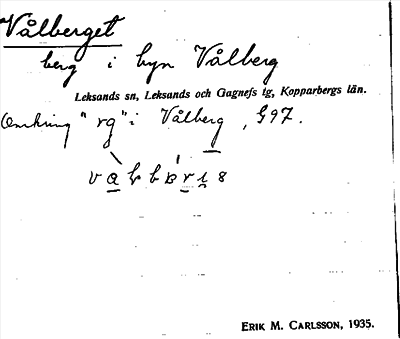 Vålberget
berg i byn Vålberg
Leksands sn, Leksands och Gagnefs tg, Kopparbergs län.
Omkring "rg" i Vålberg, § 97.
ERIK M. CARLSSON, 1935.